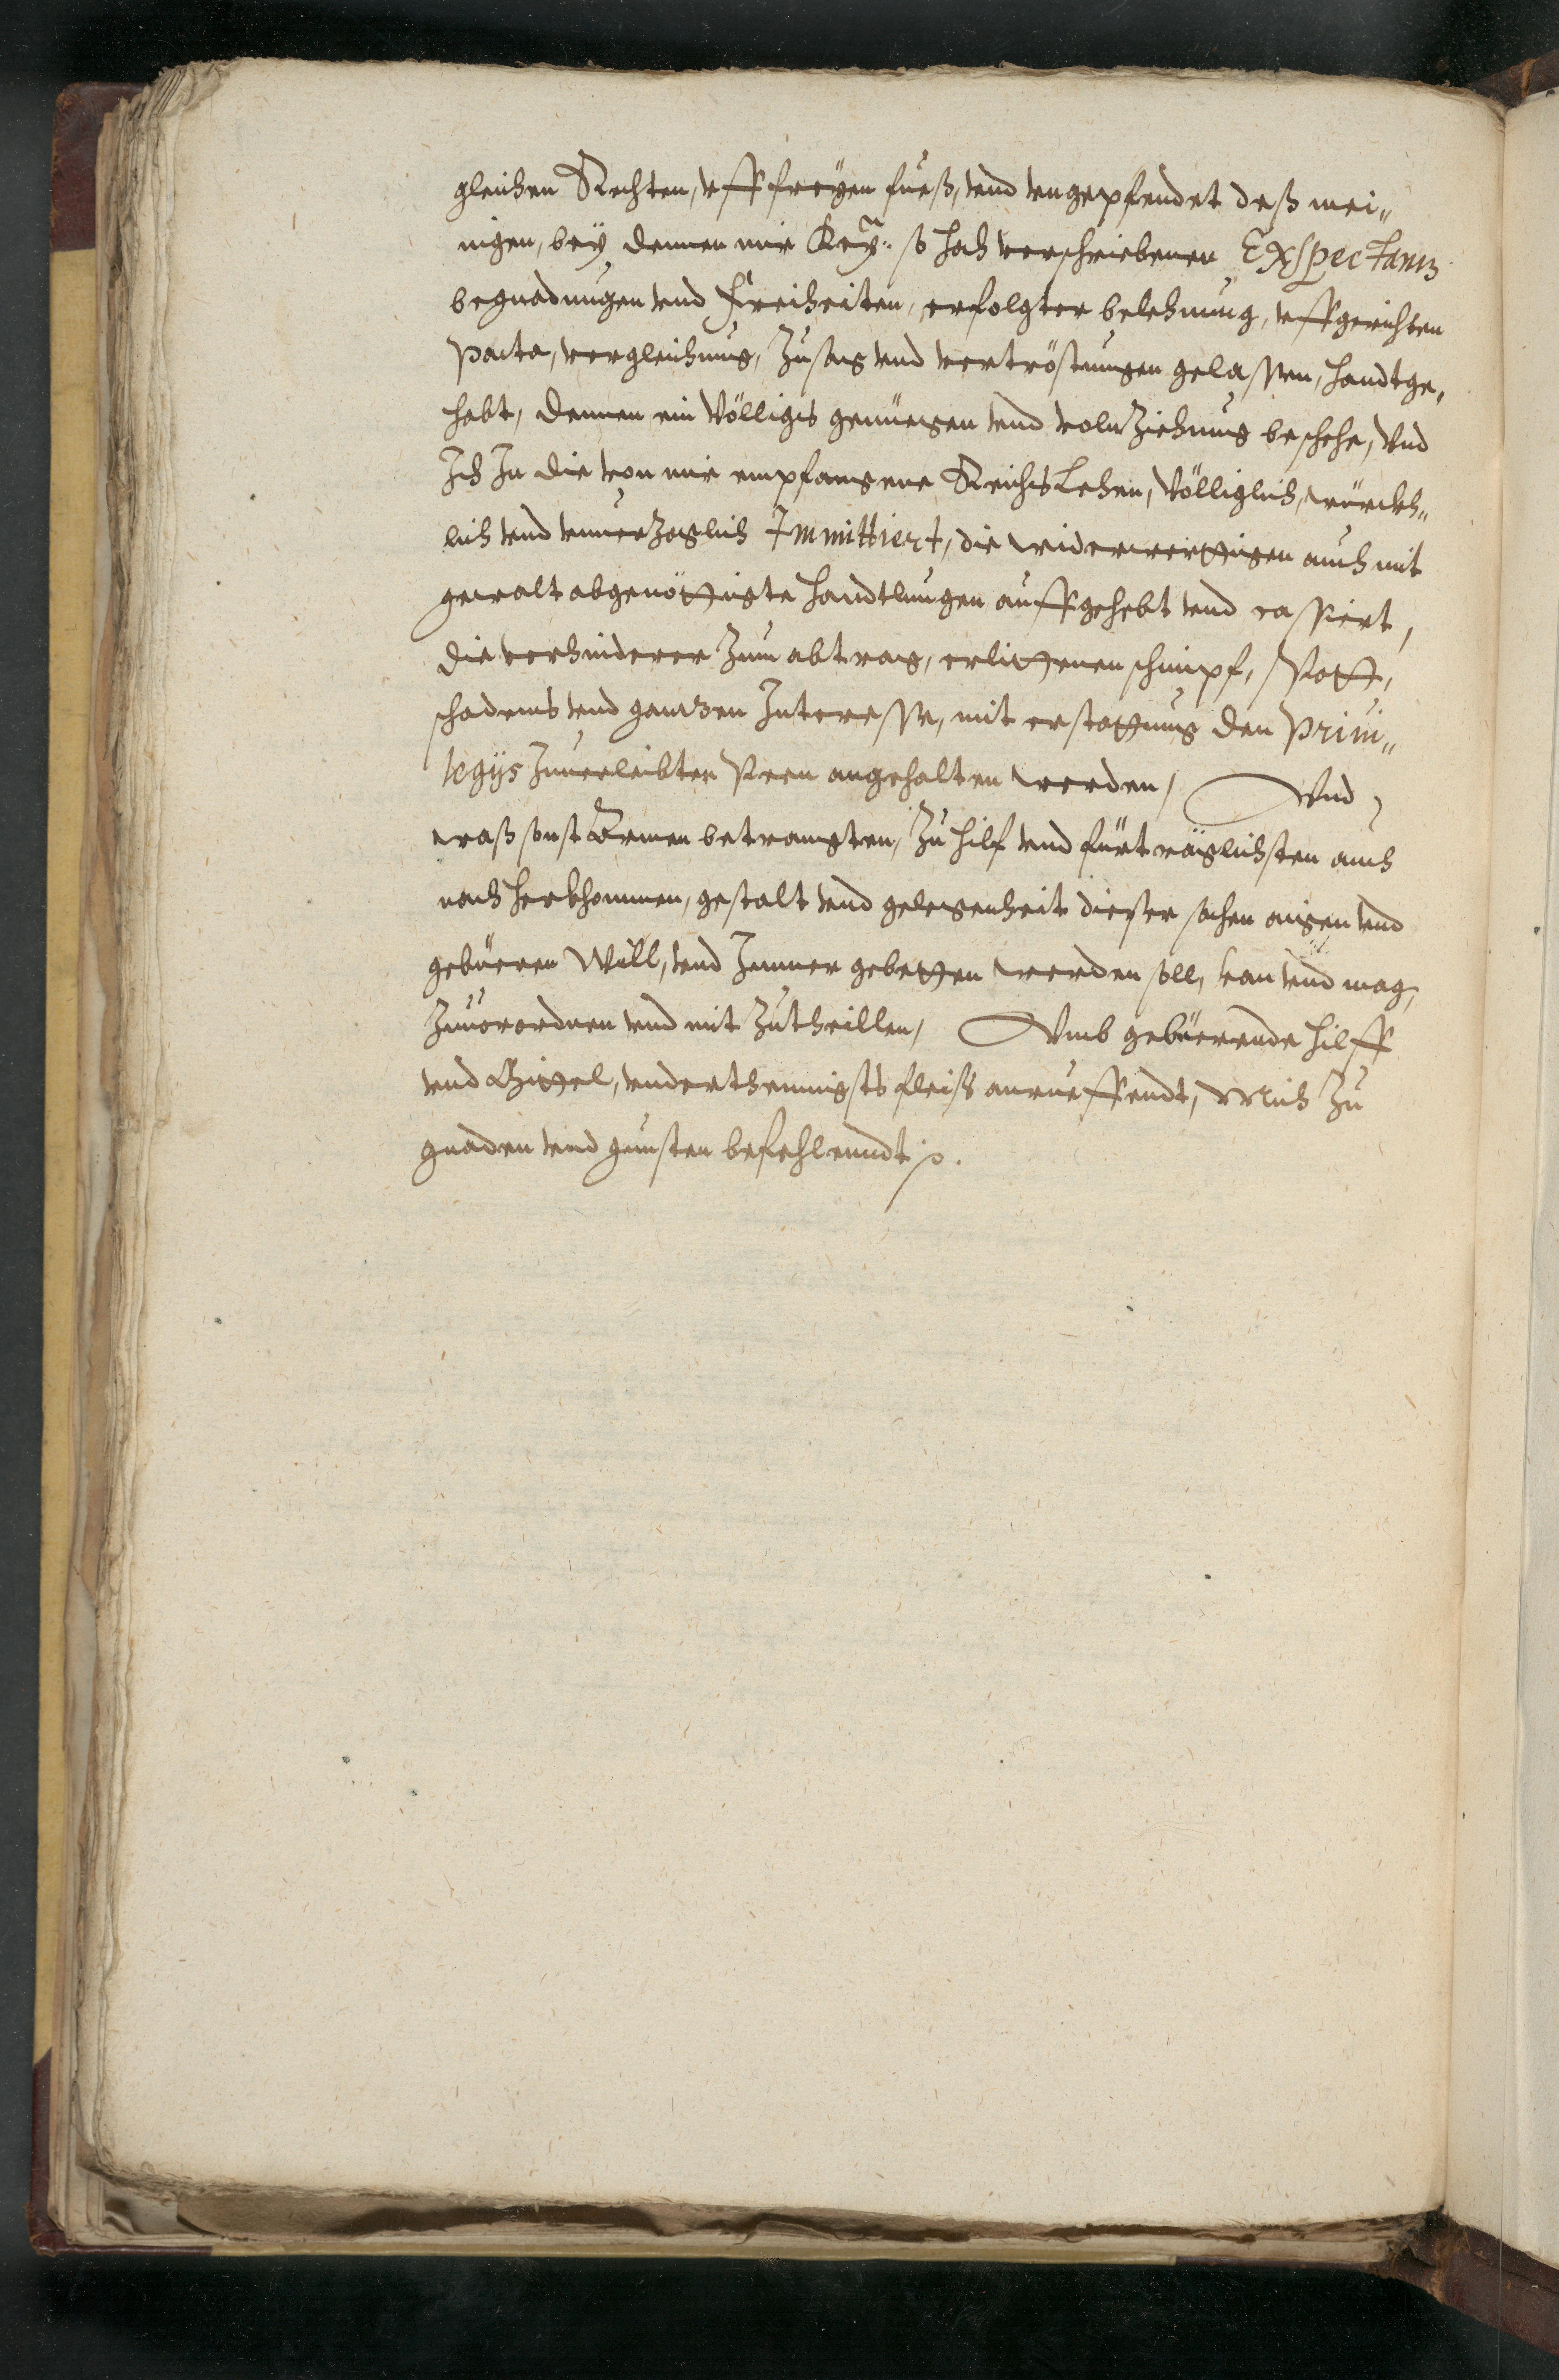 gleichen Rechten, vff freÿen fueß, vnd vngepfendet deß mei„
nigen, beÿ denen mir Keÿ: so hoch verschriebenen Exspectantz
begnadungen vnd Freiheiten, erfolgter belehnung, vffgerichten
Pacta, vergleichung, Zusag vnd vertröstungen gelassen, handtge„
habt, denen ein Völliges genüegen vnd volnZiehung beschehe, Vnd
Ich In die von mir empfangene ReichsLehen, Völliglich, würckh„
lich vnd vnuerZoglich Immittiert, die widerwerttigen auch mit
gewalt abgenöttigte handtlungen auffgehebt vnd cassiert,
die verhinderer Zum abtrag, erlittenen schimpf, Spott,
schadens vnd gantzen Interesse, mit erstattung den Priui„
legÿs Zuuerleibter Peen angehalten werden, Vnd
waß sonst Armen betrangten, Zu hilf vnd fürträglichsten auch
nach herkhommen, gestalt vnd gelegenheit dieser sachen aigen vnd
gebüeren Will, vnd Immer gebetten werden soll, kan vnd mag,
Zuuorordnen vnd mit Zutheillen, Vmb gebüerende hilff
vnd Mittel, vnderthennigsts fleiß anrueffendt, Mich Zu
gnaden vnd gunsten befehlenndt